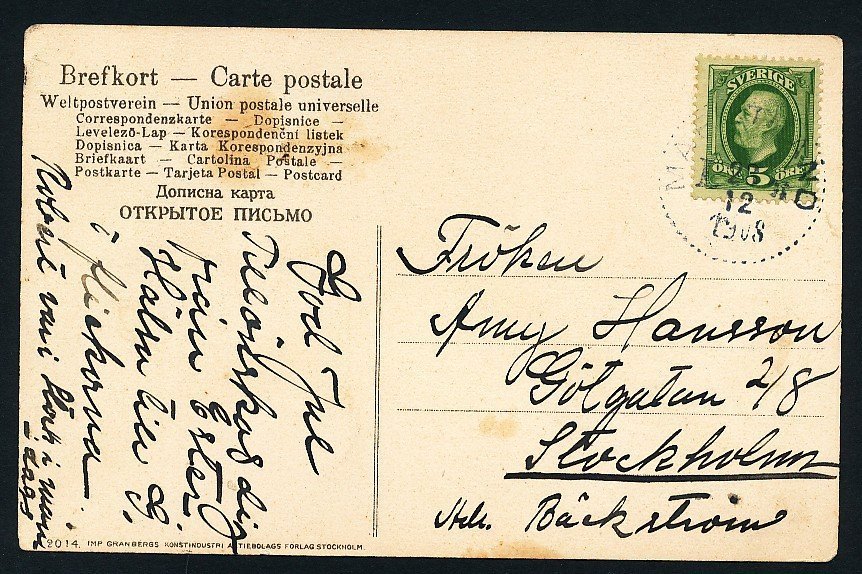 Brefkort — Carte postale
Weltpostverein — Union postale universelle
Correspondenzkarte — Dopisnice —
Levelező-Lap — Korespondenční listek
Dopisnica — Karta Korespondenzyjna
Briefkaart — Cartolina Postale —
Postkarte — Tarjeta Postal — Postcard
Дописна карта
ОТКРЫТОЕ ПИСЬМО
God Jul
Tillönskas dig
från Ester.
Hälsa till G.
i flickorna
vari i min
SVERIGE
5 ÖRE
12
1908
Fröken
Amy Hansson
Götgatan 2/8
Stockholm
Adr. Bäckström
2014. IMP GRANBERGS KONSTINDUSTRI AKTIEBOLAGS FÖRLAG STOCKHOLM.